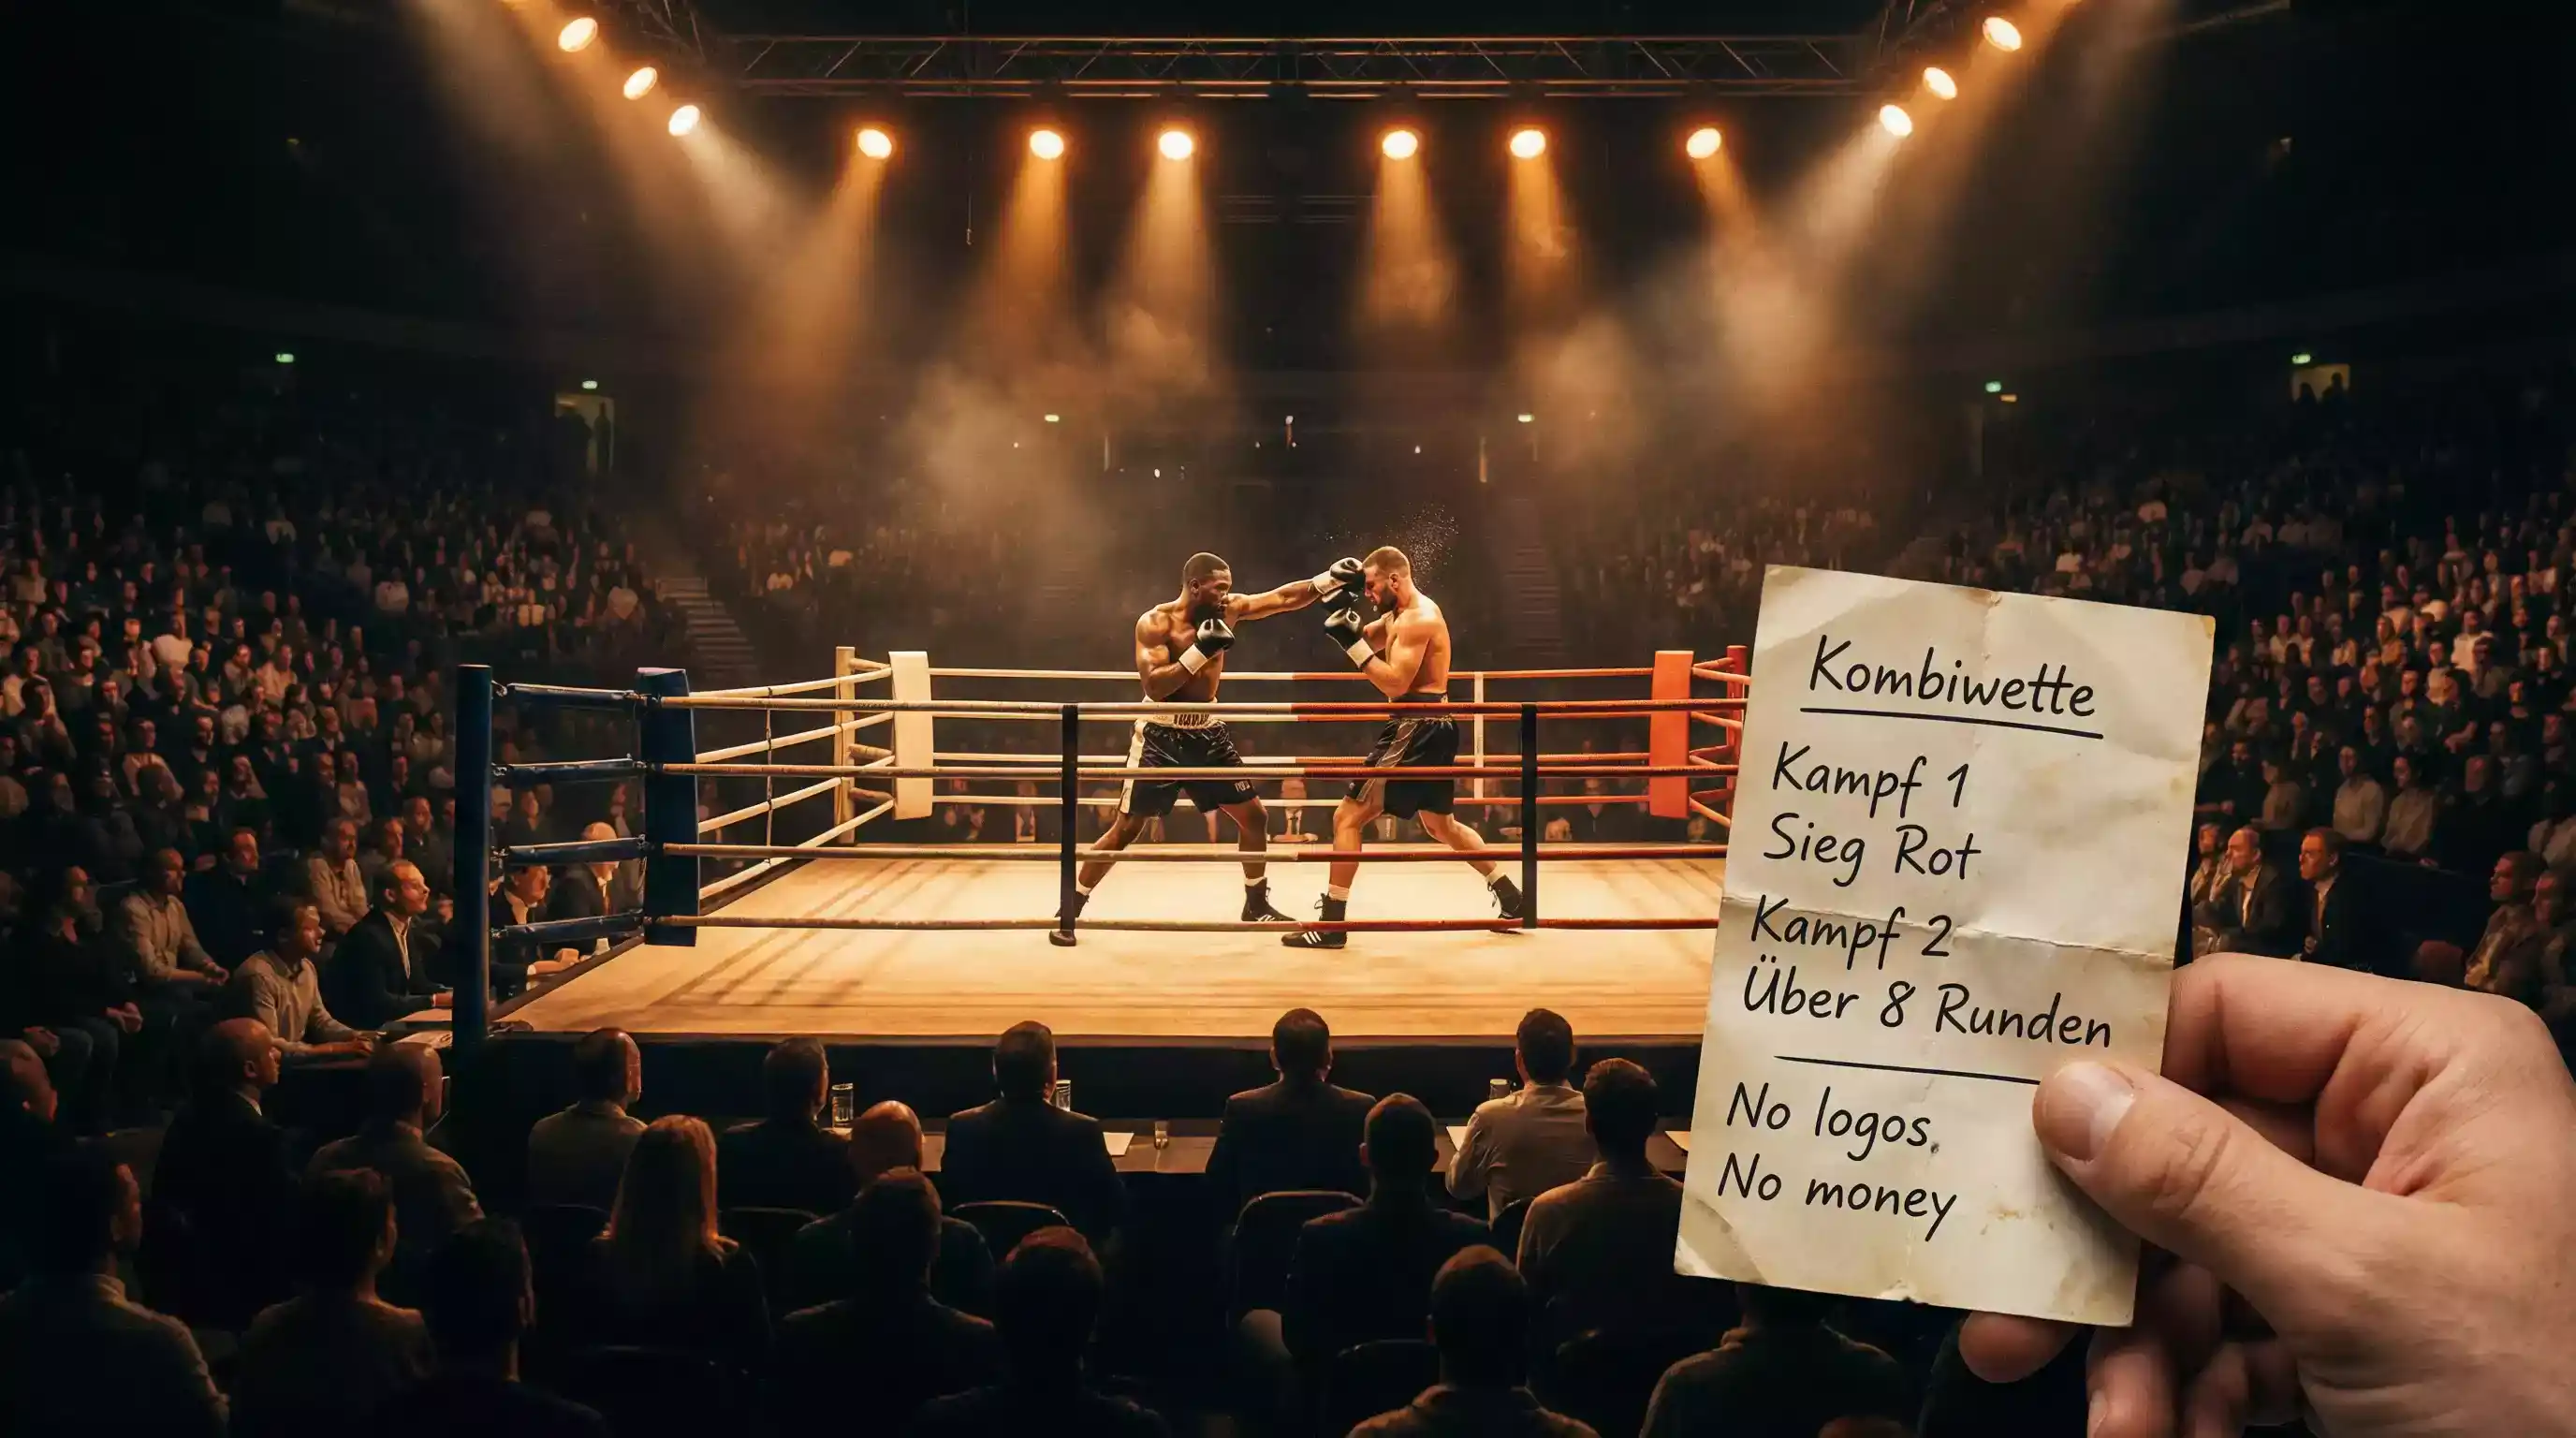 Kombiwette
Kampf 1
Sieg Rot
Kampf 2
Über 8 Runden
No logos,
No money